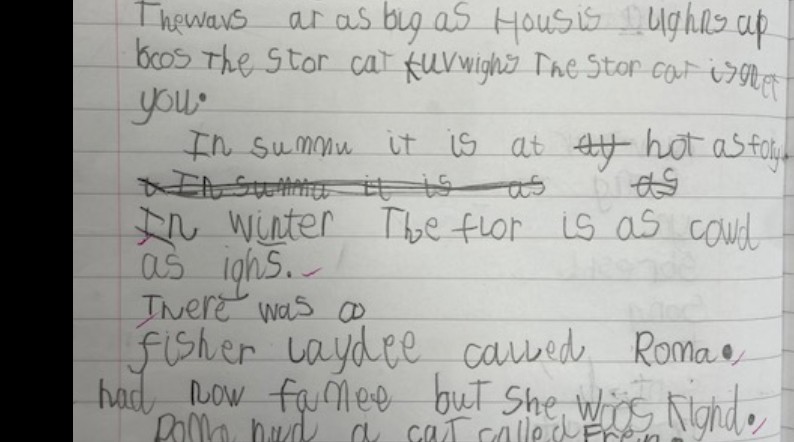 Thewavs ar as big as Housis up
bcos The Stor cat The Stor cat
you.
In summu it is at ay hot as
In summa it is as as
In winter The flor is as cowd
as ighs.
There was a
fisher Laydee called Roma.
had now famee but She was Kighd.
Roma had a cat called